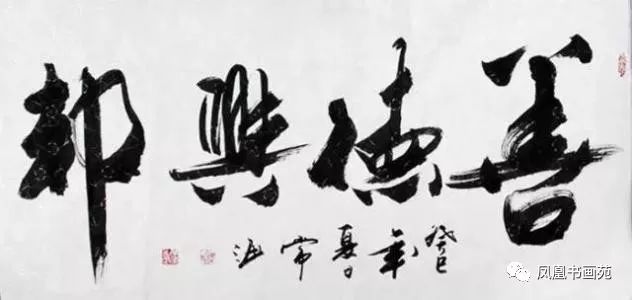 善德興邦
癸巳年夏日常
凤凰书画苑